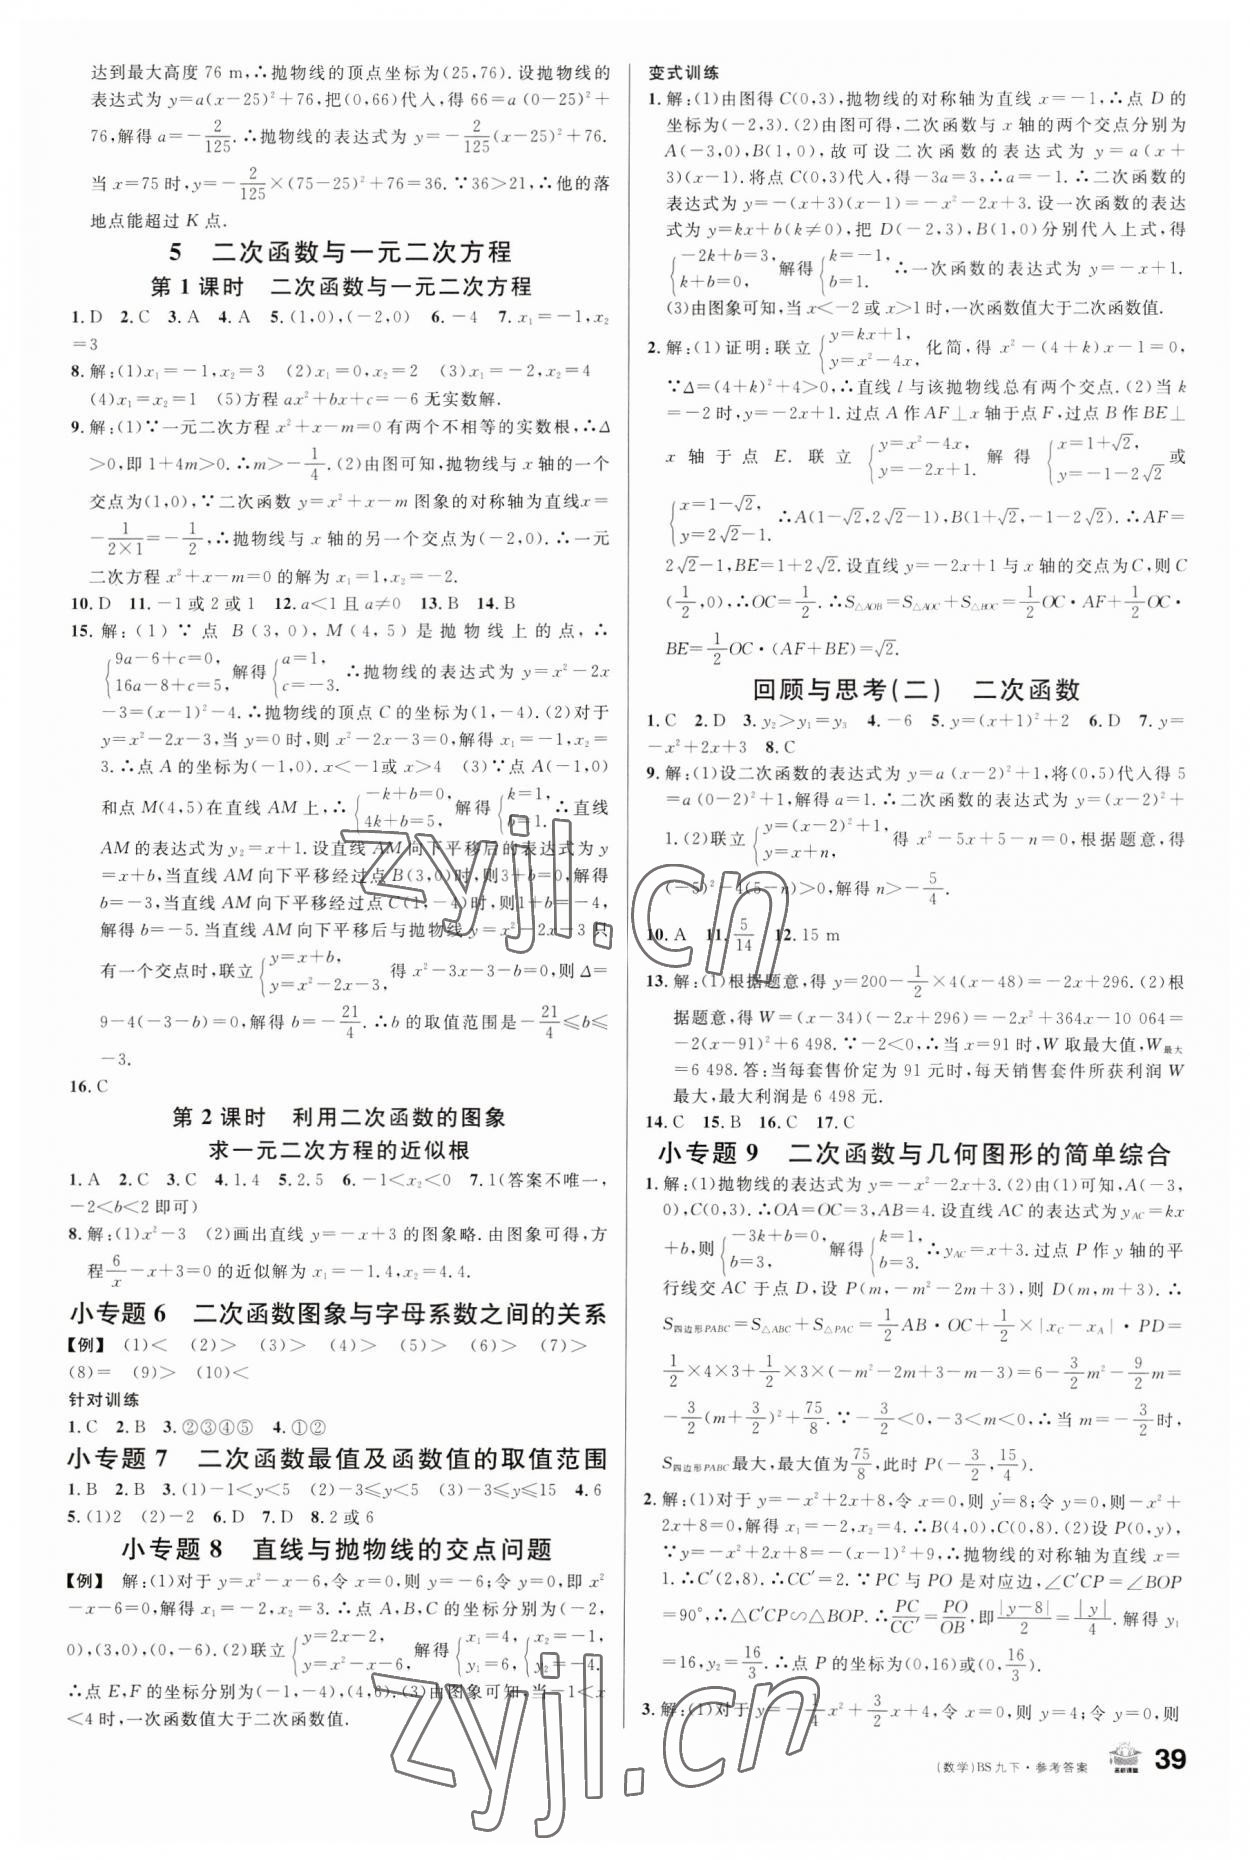 达到最大高度 76 m,∴抛物线的顶点坐标为(25,76).设抛物线的
表达式为 y=a(x-25)²+76,把(0,66)代入,得 66=a (0-25)²+
76,解得 a=-2/125.∴抛物线的表达式为 y=-2/125(x-25)²+76.
当 x=75 时,y=-2/125×(75-25)²+76=36.∵36>21,∴他的落
地点能超过 K 点.
5 二次函数与一元二次方程
第 1 课时 二次函数与一元二次方程
1.D 2.C 3.A 4.A 5.(1,0),(-2,0) 6.-4 7.x₁=-1,x₂
=3
8.解:(1)x₁=-1,x₂=3 (2)x₁=0,x₂=2 (3)x₁=-2,x₂=4
(4)x₁=x₂=1 (5)方程 ax²+bx+c=-6 无实数解.
9.解:(1)∵一元二次方程 x²+x-m=0 有两个不相等的实数根,∴Δ
>0,即 1+4m>0.∴m>-1/4.(2)由图可知,抛物线与 x 轴的一个
交点为(1,0),∵二次函数 y=x²+x-m 图象的对称轴为直线x=
-1/(2×1)=-1/2,∴抛物线与 x 轴的另一个交点为(-2,0).∴一元
二次方程 x²+x-m=0 的解为 x₁=1,x₂=-2.
10.D 11.-1 或 2 或 1 12.a<1 且 a≠0 13.B 14.B
15.解:(1)∵点 B(3,0),M(4,5)是抛物线上的点,∴
{9a-6+c=0, 16a-8+c=5, 解得{a=1, c=-3. ∴抛物线的表达式为 y=x²-2x
-3=(x-1)²-4.∴抛物线的顶点 C 的坐标为(1,-4).(2)对于
y=x²-2x-3,当 y=0 时,则 x²-2x-3=0,解得 x₁=-1,x₂=
3.∴点 A 的坐标为(-1,0).x<-1或 x>4 (3)∵点 A(-1,0)
和点 M(4,5)在直线 AM 上,∴{-k+b=0, 4k+b=5, 解得{k=1, b=1. ∴直线
AM 的表达式为 y₂=x+1.设直线 AM 向下平移后的表达式为 y
=x+b,当直线 AM 向下平移经过点 B(3,0)时,则3+b=0,解得
b=-3;当直线 AM 向下平移经过点 C(1,-4)时,则1+b=-4,
解得 b=-5.当直线 AM 向下平移后与抛物线 y=x²-2x-3 只
有一个交点时,联立{y=x+b, y=x²-2x-3, 得 x²-3x-3-b=0,则 Δ=
9-4(-3-b)=0,解得 b=-21/4.∴b 的取值范围是-21/4≤b≤
-3.
16.C
第 2 课时 利用二次函数的图象
求一元二次方程的近似根
1.A 2.C 3.C 4.1.4 5.2.5 6.-1<x₂<0 7.1(答案不唯一,
-2<b<2 即可)
8.解:(1)x²-3 (2)画出直线 y=-x+3 的图象略.由图象可得,方
程6/x-x+3=0 的近似解为 x₁=-1.4,x₂=4.4.
小专题 6 二次函数图象与字母系数之间的关系
【例】 (1)< (2)> (3)> (4)> (5)> (6)> (7)>
(8)= (9)> (10)<
针对训练
1.C 2.B 3.②③④⑤ 4.①②
小专题 7 二次函数最值及函数值的取值范围
1.B 2.B 3.(1)-1<y<5 (2)-3≤y<5 (3)-3≤y≤15 4.6
5.(1)2 (2)-2 6.D 7.D 8.2 或 6
小专题 8 直线与抛物线的交点问题
【例】 解:(1)对于 y=x²-x-6,令 x=0,则 y=-6;令 y=0,即 x²
-x-6=0,解得 x₁=-2,x₂=3.∴点 A,B,C 的坐标分别为(-2,
0),(3,0),(0,-6).(2)联立{y=2x-2, y=x²-x-6, 解得{x₁=4, y₁=6, {x₂=-1, y₂=-4.
∴点 E,F 的坐标分别为(-1,-4),(4,6).(3)由图象可知,当-1<x
<4 时,一次函数值大于二次函数值.
变式训练
1.解:(1)由图得 C(0,3),抛物线的对称轴为直线 x=-1,∴点 D 的
坐标为(-2,3).(2)由图可得,二次函数与 x 轴的两个交点分别为
A(-3,0),B(1,0),故可设二次函数的表达式为 y=a(x+
3)(x-1).将点 C(0,3)代入,得-3a=3,∴a=-1.∴二次函数的
表达式为 y=-(x+3)(x-1)=-x²-2x+3.设一次函数的表达
式为 y=kx+b(k≠0),把 D(-2,3),B(1,0)分别代入上式,得
{-2k+b=3, k+b=0, 解得{k=-1, b=1. ∴一次函数的表达式为 y=-x+1.
(3)由图象可知,当 x<-2或 x>1 时,一次函数值大于二次函数值.
2.解:(1)证明:联立{y=kx+1, y=x²-4x, 化简,得 x²-(4+k)x-1=0,
∵Δ=(4+k)²+4>0,∴直线 l 与该抛物线总有两个交点.(2)当 k
=-2 时,y=-2x+1.过点 A 作 AF⊥x 轴于点 F,过点 B 作 BE⊥
x 轴于点 E.联立{y=x²-4x, y=-2x+1. 解得{x=1+√2, y=-1-2√2 或
{x=1-√2, y=2√2-1. ∴A(1-√2,2√2-1),B(1+√2,-1-2√2).∴AF=
2√2-1,BE=1+2√2.设直线 y=-2x+1 与 x 轴的交点为 C,则 C
(1/2,0),∴OC=1/2.∴S△AOB=S△AOC+S△BOC=1/2OC·AF+1/2OC·
BE=1/2OC·(AF+BE)=√2.
回顾与思考(二) 二次函数
1.C 2.D 3.y₂>y₁=y₃ 4.-6 5.y=(x+1)²+2 6.D 7.y=
-x²+2x+3 8.C
9.解:(1)设二次函数的表达式为 y=a (x-2)²+1,将(0,5)代入得 5
=a (0-2)²+1,解得 a=1.∴二次函数的表达式为 y=(x-2)²+
1.(2)联立{y=(x-2)²+1, y=x+n, 得 x²-5x+5-n=0,根据题意,得
(-5)²-4(5-n)>0,解得 n>-5/4.
10.A 11.5/14 12.15 m
13.解:(1)根据题意,得 y=200-1/2×4(x-48)=-2x+296.(2)根
据题意,得 W=(x-34)(-2x+296)=-2x²+364x-10 064=
-2(x-91)²+6 498.∵-2<0,∴当 x=91 时,W 取最大值,W最大
=6 498.答:当每套售价定为 91 元时,每天销售套件所获利润 W
最大,最大利润是 6 498 元.
14.C 15.B 16.C 17.C
小专题 9 二次函数与几何图形的简单综合
1.解:(1)抛物线的表达式为 y=-x²-2x+3.(2)由(1)可知,A(-3,
0),C(0,3).∴OA=OC=3,AB=4.设直线 AC 的表达式为 yAC=kx
+b,则{-3k+b=0, b=3, 解得{k=1, b=3. ∴yAC=x+3.过点 P 作 y 轴的平
行线交 AC 于点 D,设 P(m,-m²-2m+3),则 D(m,m+3).∴
S四边形PABC=S△ABC+S△PAC=1/2AB·OC+1/2×|xC-xA|·PD=
1/2×4×3+1/2×3×(-m²-2m+3-m-3)=6-3/2m²-9/2m=
-3/2(m+3/2)²+75/8.∵-3/2<0,-3<m<0,∴当 m=-3/2时,
S四边形PABC最大,最大值为75/8,此时 P(-3/2,15/4).
2.解:(1)对于 y=-x²+2x+8,令 x=0,则 y=8;令 y=0,则-x²+
2x+8=0,解得 x₁=-2,x₂=4.∴B(4,0),C(0,8).(2)设 P(0,y),
∵y=-x²+2x+8=-(x-1)²+9,∴抛物线的对称轴为直线 x=
1.∴C′(2,8).∴CC′=2.∵PC 与 PO 是对应边,∠C′CP=∠BOP
=90°,∴△C′CP∽△BOP.∴PC/CC′=PO/OB,即|y-8|/2=|y|/4.解得 y₁
=16,y₂=16/3.∴点 P 的坐标为(0,16)或(0,16/3).
3.解:(1)对于 y=-1/4x²+3/2x+4,令 x=0,则 y=4;令 y=0,则
zyjl.cn
zyjl.cn
(数学)BS 九下·参考答案 39